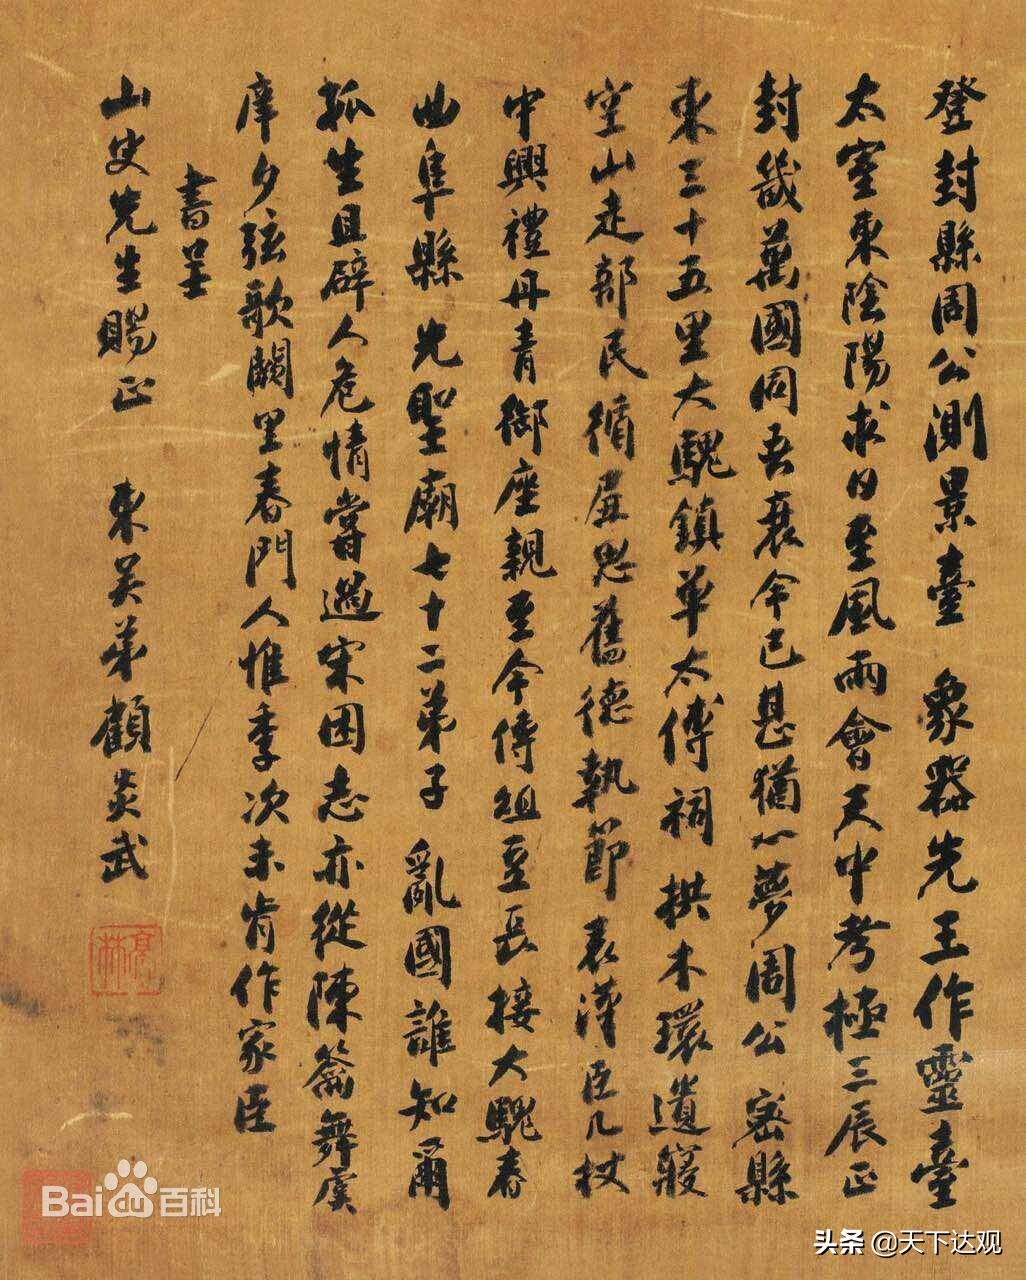 登封縣周公測景臺　象器先王作靈臺
太室東陰陽求日至風雨會天中考極三辰正
封畿萬國同吾衰今已甚猶心夢周公　密縣
東三十五里大騩鎮卓太傅祠　拱木環遺寢
空山走部民循厓思舊德執節表漢臣几杖
中興禮丹青御座親至今傳俎豆長接大騩春
曲阜縣　先聖廟七十二弟子　亂國誰知爾
孤生且辟人危情嘗過宋困志亦從陳籥舞虞
庠夕弦歌闕里春門人惟季次未肯作家臣
書呈
山史先生賜正　東吴弟顧炎武
亭林
Bai百科
头条 @天下达观